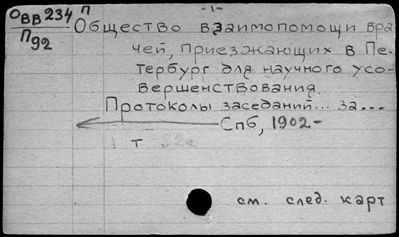 -1-
ОВВ 234
П92
П
Общество взаимопомощи вра
чей, приезжающих в Пе-
тербург для научного усо-
вершенствования.
Протоколы заседаний... за...
Спб, 1902-
1 т
см. след. карт